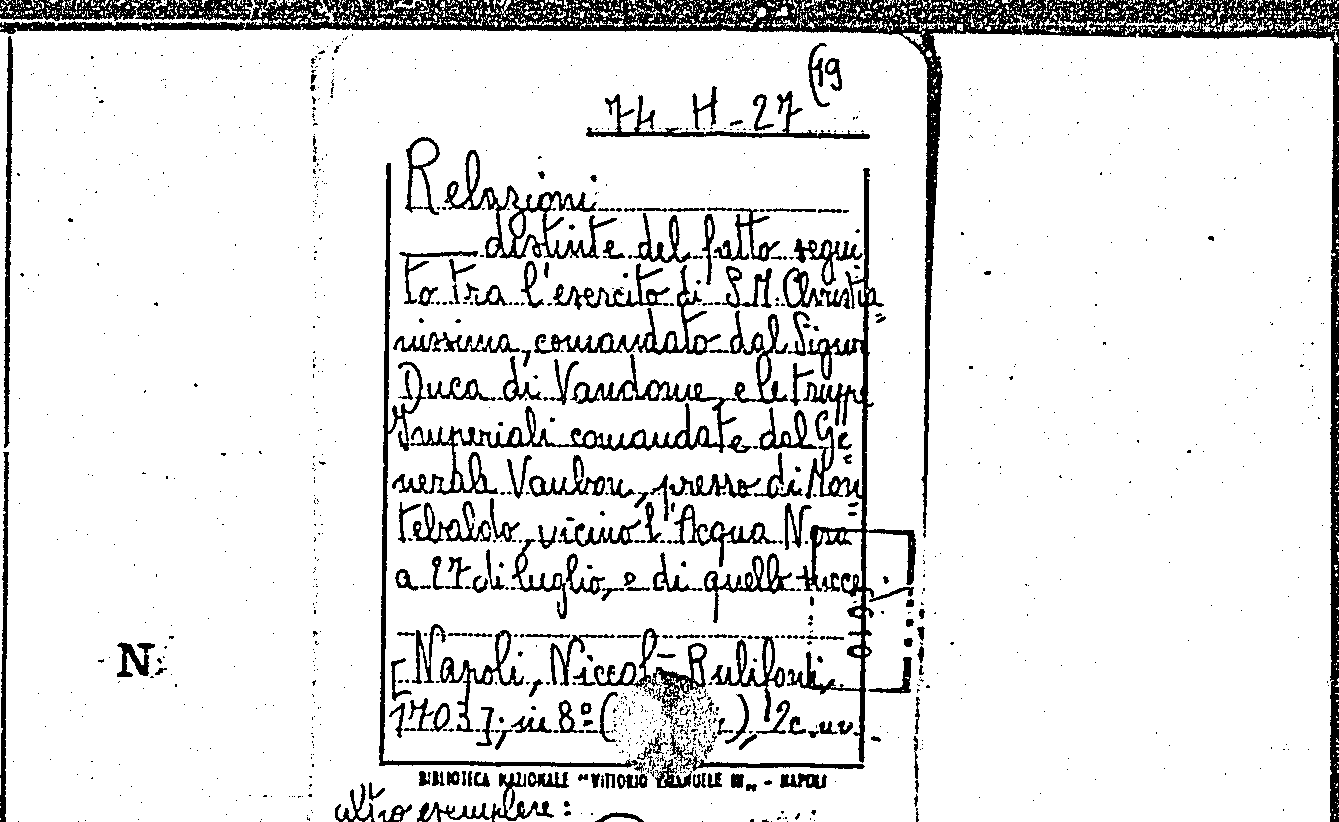 74 H-27 (19
Relazioni
distinte del fatto segui
to tra l'esercito di S.M. Christia=
nissima, comandato dal Signor
Duca di Vandome, e le truppe
Imperiali comandate dal Ge=
nerale Vaubon, presso di Mon=
tebaldo, vicino l'Acqua Nera
a 27 di luglio, e di quello succes
N
[Napoli, Niccolò Bulifoni,
1703]; in 8º ( ), 2c.nn.
BIBLIOTECA NAZIONALE "VITTORIO EMANUELE III" - NAPOLI
altro esemplare: